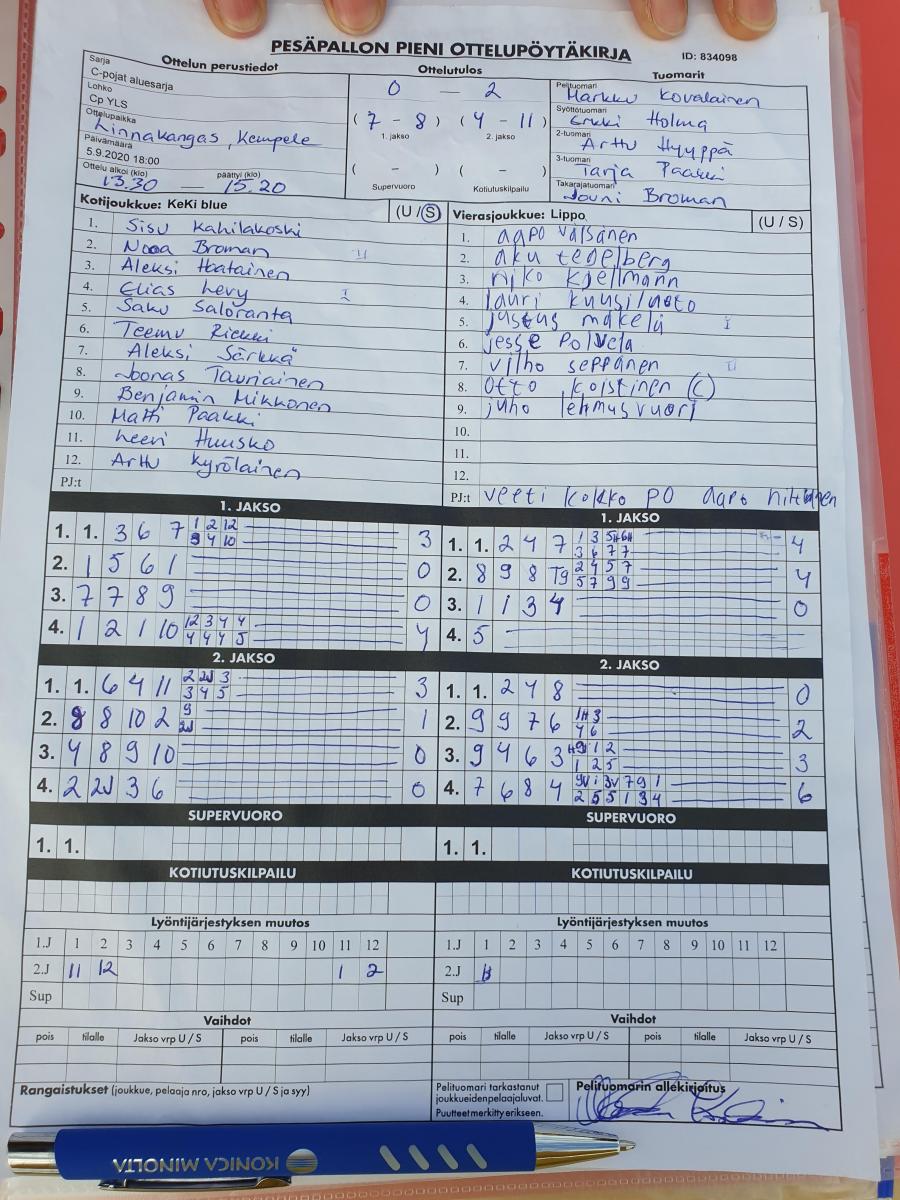 PESÄPALLON PIENI OTTELUPÖYTÄKIRJA
ID: 834098
Ottelun perustiedot
Ottelutulos
Tuomarit
Sarja
C-pojat aluesarja
Lohko
Cp YLS
Ottelupaikka
Linnakangas, Kempele
Päivämäärä
5.9.2020 18:00
Ottelu alkoi (klo) päättyi (klo)
13.30 — 15.20
0 — 2
(7 - 8) (4 - 11)
1. jakso 2. jakso
( - ) ( - )
Supervuoro Kotiutuskilpailu
Pelituomari
Markku Kovalainen
Syöttötuomari
Erkki Holma
2-tuomari
Arttu Hyyppä
3-tuomari
Tarja Paakki
Takarajatuomari
Jouni Broman
Kotijoukkue: KeKi blue (U / S)
1. Sisu Kahilakoski
2. Nooa Broman II
3. Aleksi Haatainen
4. Elias Levy I
5. Saku Saloranta
6. Teemu Riekki
7. Aleksi Särkkä
8. Joonas Tauriainen
9. Benjamin Mikkonen
10. Matti Paakki
11. Leevi Huusko
12. Arttu Kyrölainen
PJ:t
Vierasjoukkue: Lippo (U / S)
1. aapo Väisänen
2. aku tegelberg
3. niko kjellmann
4. lauri kuusiluoto
5. justus mäkelä I
6. jesse Polvela
7. vilho seppänen II
8. Otto koistinen (C)
9. juho lehmusvuori
10.
11.
12.
PJ:t veeti kokko PO aapo
1. JAKSO
1. 1. 3 6 7 1 2 12 3
9 4 10
2. 1 5 6 1 0
3. 7 7 8 9 0
4. 1 2 1 10 12 3 4 4 4
4 4 4 5
1. JAKSO
1. 1. 2 4 7 1 3 5H 6H 4
3 6 7 7
2. 8 9 8 T9 2 4 5 7 4
5 7 9 9
3. 1 1 3 4 0
4. 5
2. JAKSO
1. 1. 6 4 11 2 2J 3 3
3 4 5
2. 8 8 10 2 9 1
2J
3. 4 8 9 10 0
4. 2 2J 3 6 0
2. JAKSO
1. 1. 2 4 8 0
2. 9 9 7 6 1H 3 2
4 6
3. 9 4 6 3 1 2 3
1 2 5
4. 7 6 8 4 9V 1 3V 7 9 1 6
2 5 5 1 3 4
SUPERVUORO
1. 1.
SUPERVUORO
1. 1.
KOTIUTUSKILPAILU
KOTIUTUSKILPAILU
Lyöntijärjestyksen muutos
1.J 1 2 3 4 5 6 7 8 9 10 11 12
2.J 11 12 1 2
Sup
Lyöntijärjestyksen muutos
1.J 1 2 3 4 5 6 7 8 9 10 11 12
2.J
Sup
Vaihdot
pois tilalle Jakso vrp U / S pois tilalle Jakso vrp U / S
Vaihdot
pois tilalle Jakso vrp U / S pois tilalle Jakso vrp U / S
Rangaistukset (joukkue, pelaaja nro, jakso vrp U / S ja syy)
Pelituomari tarkastanut
joukkueiden pelaajaluvat.
Puutteet merkitty erikseen.
Pelituomarin allekirjoitus
KONICA MINOLTA